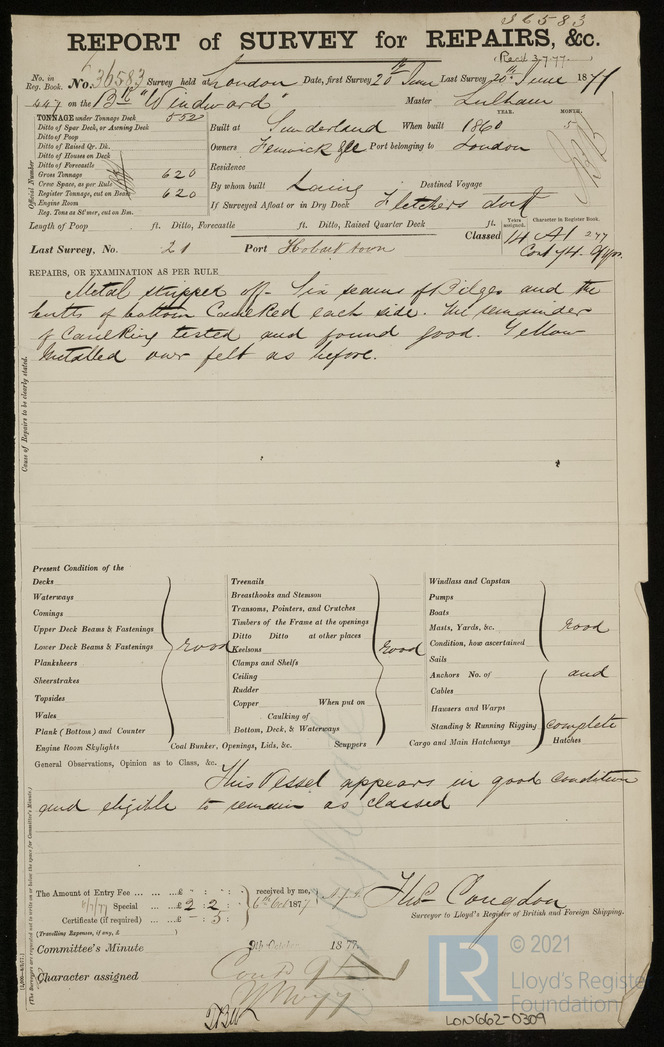 36583
REPORT of SURVEY for REPAIRS, &c.
Recd 3.7.77.
No. in Reg. Book. No. 36583 Survey held at London Date, first Survey 20th June Last Survey 20th June 1877
447 on the Bk "Windward" Master Lulham
TONNAGE under Tonnage Deck 552
Ditto of Spar Deck, or Awning Deck
Ditto of Poop
Ditto of Raised Qr. Dk.
Ditto of Houses on Deck
Ditto of Forecastle
Gross Tonnage 620
Crew Space, as per Rule
Register Tonnage, cut on Beam 620
Engine Room
Reg. Tons as St'mer, cut on Bm.
Official Number
YEAR. MONTH.
Built at Sunderland When built 1860 5
Owners Fenwick &Co Port belonging to London
Residence
By whom built Laing Destined Voyage
If Surveyed Afloat or in Dry Dock Fletchers dock
Length of Poop ft. Ditto, Forecastle ft. Ditto, Raised Quarter Deck ft.
Years assigned. Character in Register Book.
Classed 14 A1 2.77
Cont 74. 9 yrs.
Last Survey, No. 21 Port Hobart town
REPAIRS, OR EXAMINATION AS PER RULE
Metal stripped off. Six seams of Bilges and the
butts of bottom Caulked each side. The remainder
of Caulking tested and found good. Yellow
Metalled over felt as before.
Cause of Repairs to be clearly stated.
Present Condition of the
Decks
Waterways
Comings
Upper Deck Beams & Fastenings
Lower Deck Beams & Fastenings
Planksheers
Sheerstrakes
Topsides
Wales
Plank (Bottom) and Counter
Good
Treenails
Breasthooks and Stemson
Transoms, Pointers, and Crutches
Timbers of the Frame at the openings
Ditto Ditto at other places
Keelsons
Clamps and Shelfs
Ceiling
Rudder
Copper When put on
Caulking of
Bottom, Deck, & Waterways
Good
Windlass and Capstan
Pumps
Boats
Masts, Yards, &c.
Condition, how ascertained
Sails
Anchors No. of
Cables
Hawsers and Warps
Standing & Running Rigging
Good
and
complete
Engine Room Skylights Coal Bunker, Openings, Lids, &c. Scuppers Cargo and Main Hatchways Hatches
General Observations, Opinion as to Class, &c.
This Vessel appears in good condition
and eligible to remain as classed
The Amount of Entry Fee ... ... ...£ : :
Special ... ...£ 2 : 2 :
Certificate (if required) ... ...£ - : 5 :
(Travelling Expenses, if any, £ )
received by me,
6th Oct 1877
Thos Congdon
Surveyor to Lloyd's Register of British and Foreign Shipping.
Committee's Minute 9th October 1877.
Character assigned
© 2021
LR
Lloyd's Register
Foundation
LON662-0309